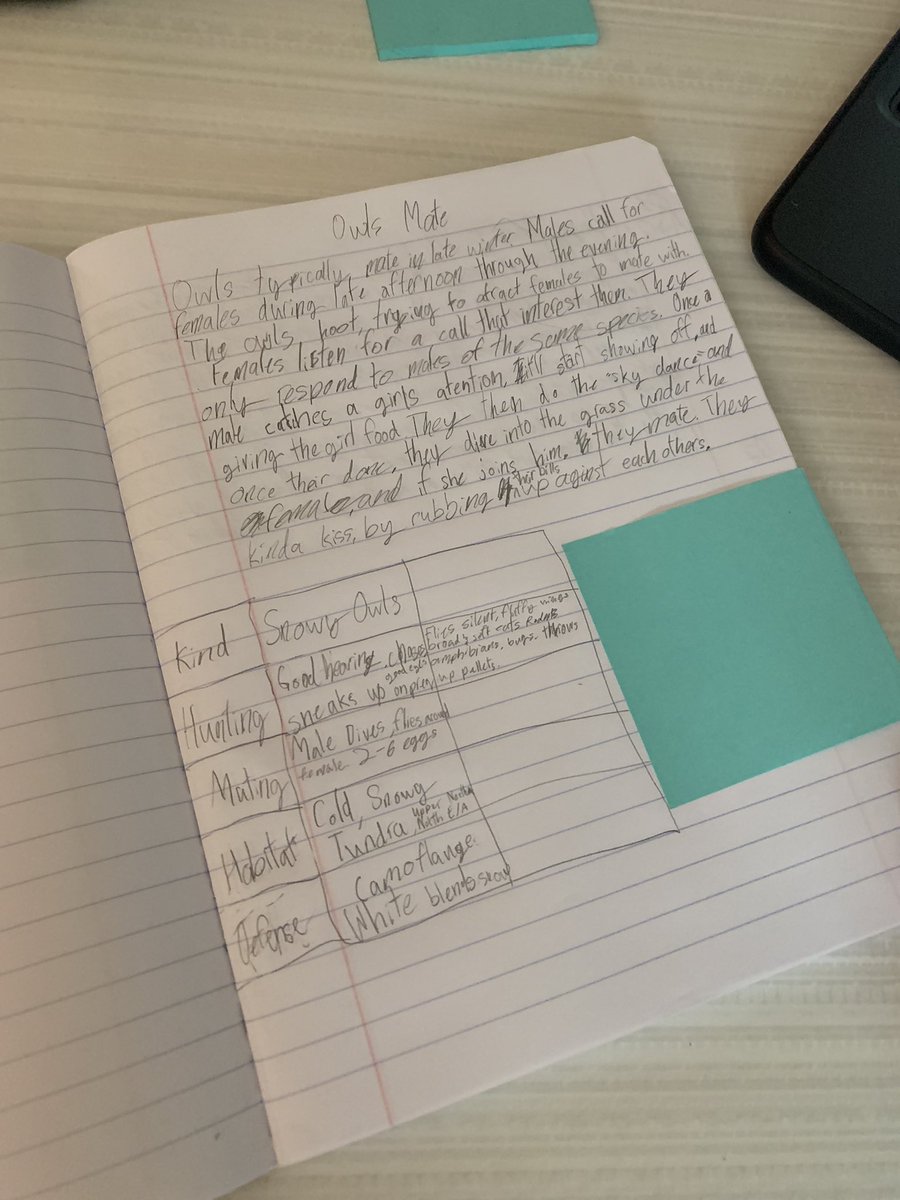 Owls Mate
Owls typically mate in late winter Males call for
females during late afternoon through the evening.
The owls hoot, trying to atract females to mate with.
Females listen for a call that interest them. They
only respond to males of the same species. Once a
male catches a girls atention, start showing off, and
giving the girl food They then do the "sky dance" and
once their danc, they dive into the grass under the
female, and if she joins him, they mate. They
kinda kiss, by rubbing their bills up against each others.
Kind
Snowy Owls
Hunting
Good hearing, good
sneaks up on prey
Flies silent, fluffy wings
broad soft eats Rodents
amphibians, bugs, throws
up pellets.
Mating
Male Dives, flies around
female. 2-6 eggs
Habitat
Cold, Snowy
Tundra, upper North
North E/A
Defense
Camoflauge
White blends snow